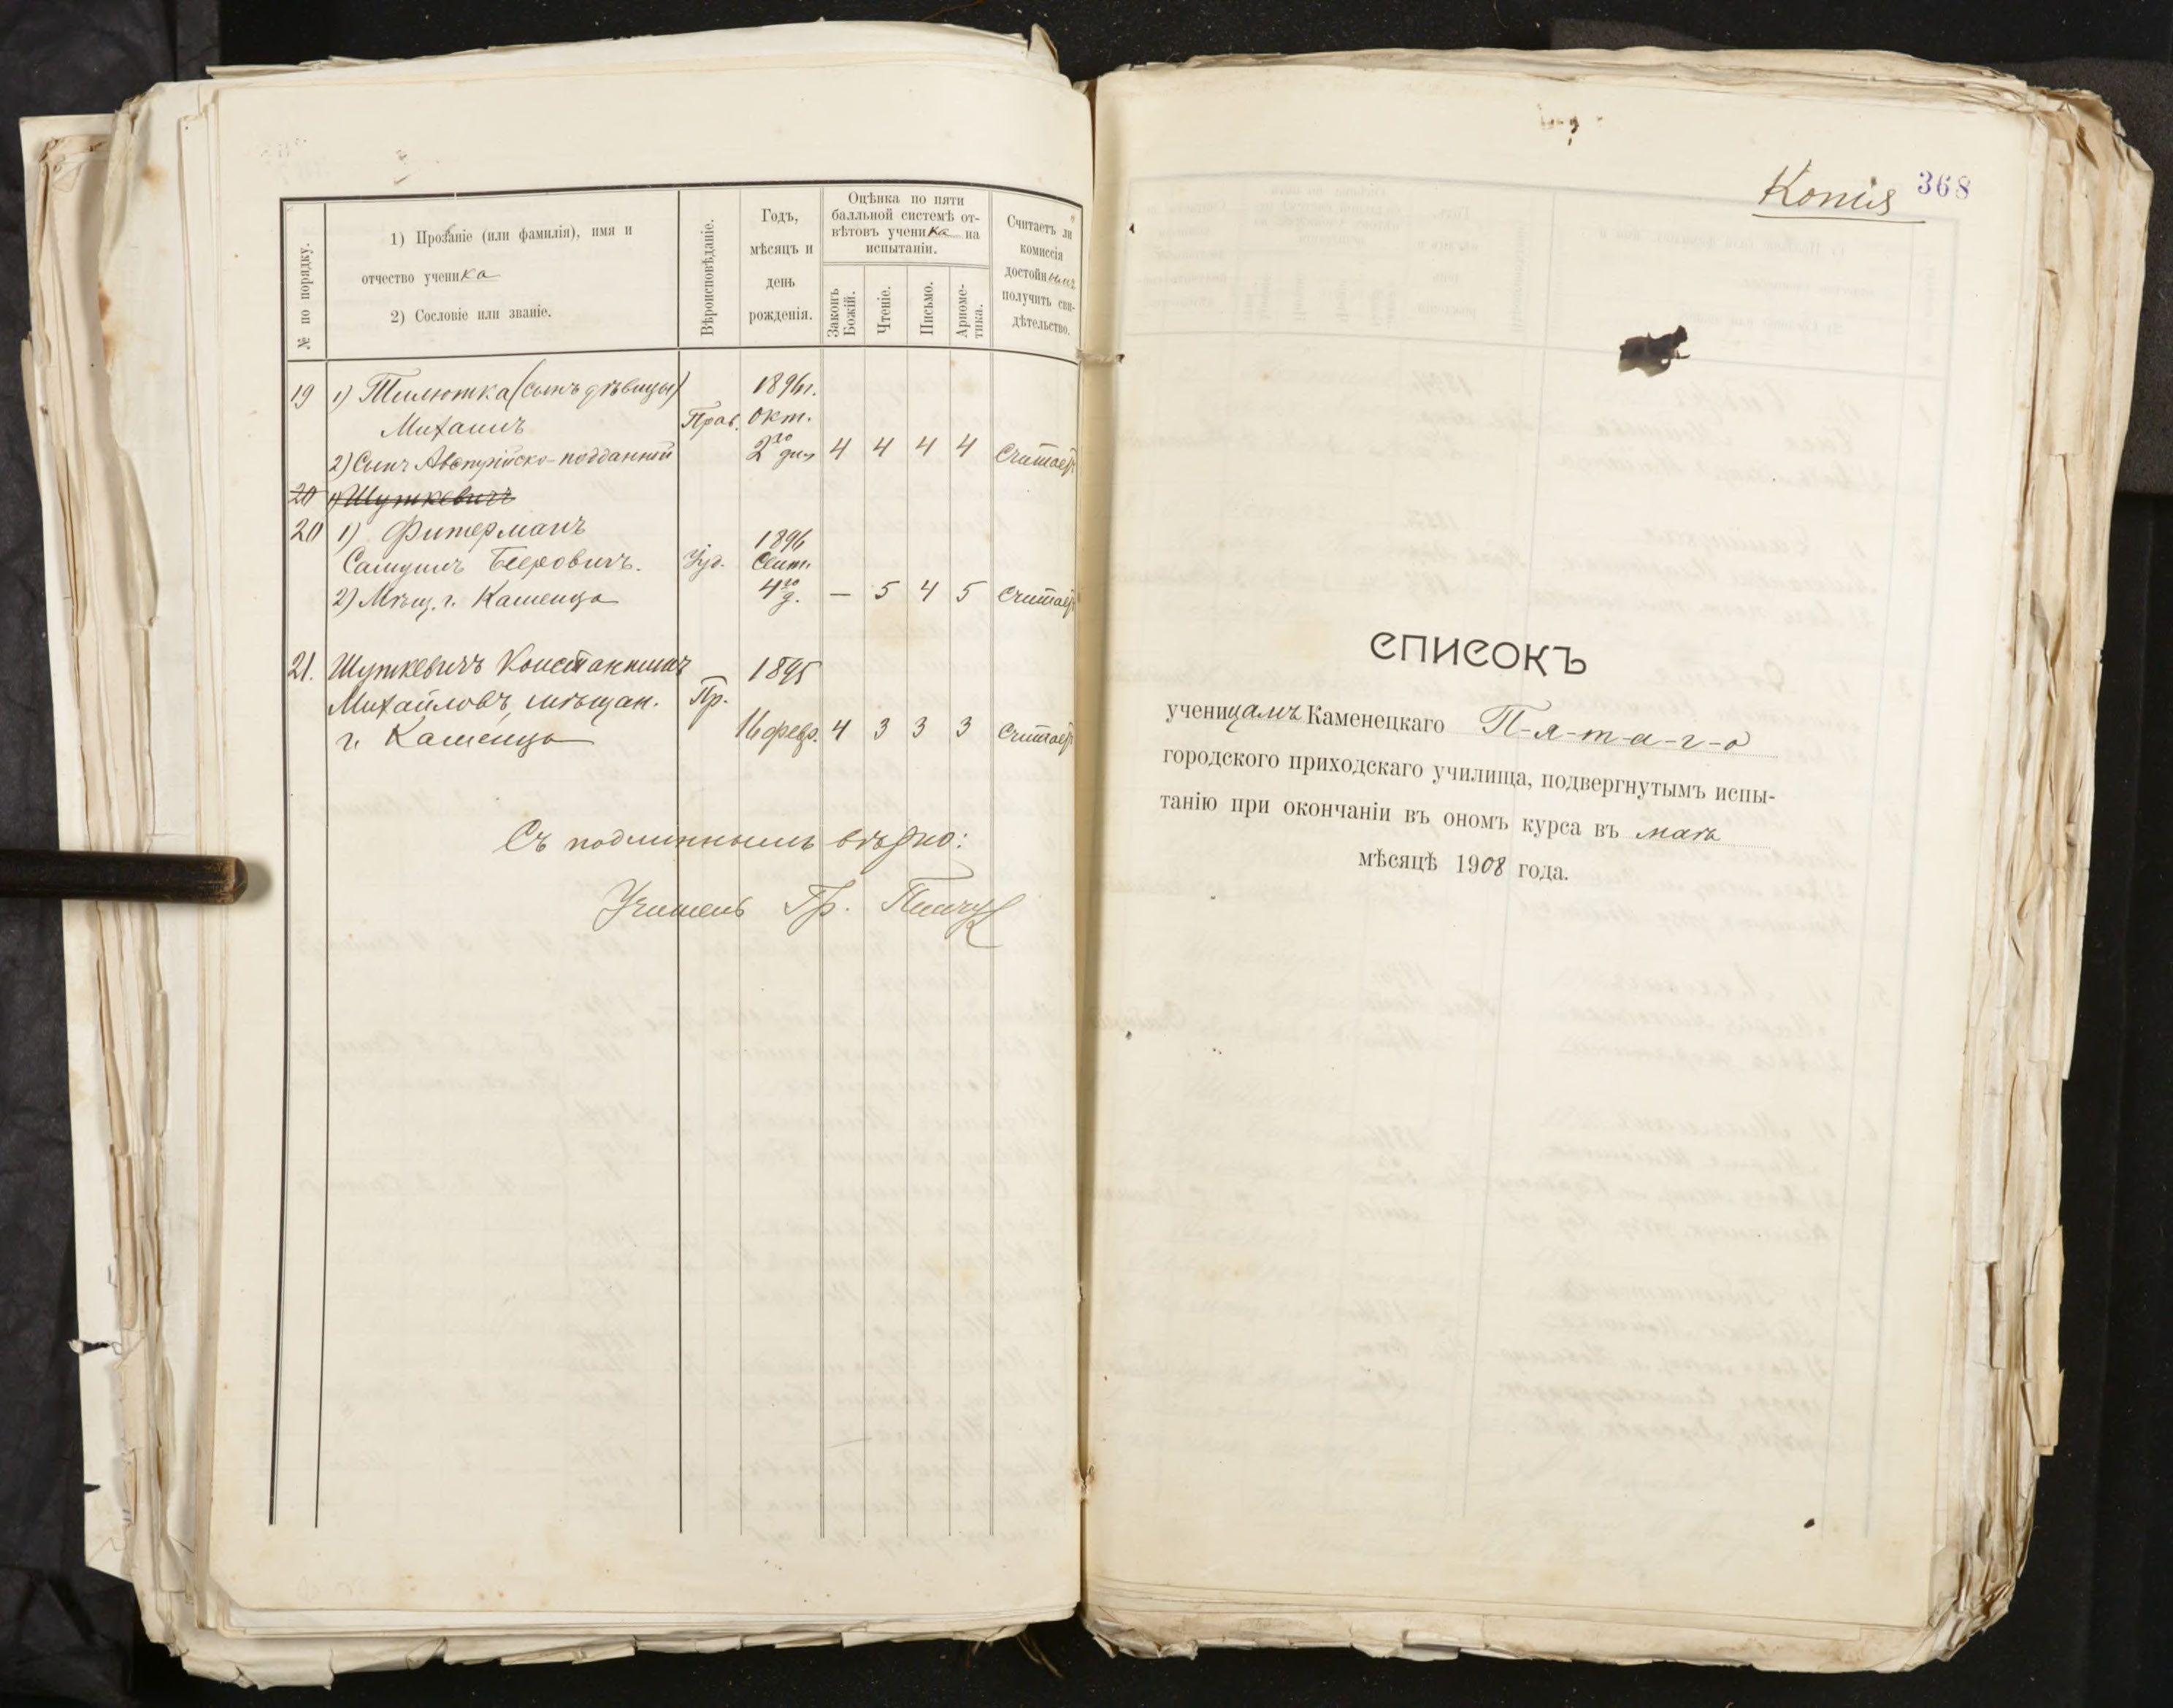 № по порядку.
1) Прозваніе (или фамилія), имя и
отчество ученика
2) Сословіе или званіе.
Вѣроисповѣданіе.
Годъ,
мѣсяцъ и
день
рожденія.
Оцѣнка по пяти
балльной системѣ от-
вѣтовъ ученика на
испытаніи.
Законъ
Божій.
Чтеніе.
Письмо.
Ариѳме-
тика.
Считаетъ ли
комиссія
достойнымъ
получить сви-
дѣтельство.
19 1) Тилютка (сынъ дѣвицы) 1896г.
Михаилъ Прав. Окт.
2) Сынъ Австрійско-подданной 2го дня 4 4 4 4 Считаетъ
20 1) Шуткевичъ
20 1) Фитерманъ 1896
Самуилъ Беровичъ. Іуд. Сент.
2) Мѣщ. г. Каменца 4го д. — 5 4 5 Считаетъ
21. Шуткевичъ Константинъ 1895
Михайловъ, мѣщан. Пр.
г. Каменца 16 февр. 4 3 3 3 Считаетъ
Съ подлиннымъ вѣрно:
Учитель Гр.
Копія 368
СПИСОКЪ
ученицамъ Каменецкаго П-я-т-а-г-о
городского приходскаго училища, подвергнутымъ испы-
танію при окончаніи въ ономъ курса въ маѣ
мѣсяцѣ 1908 года.